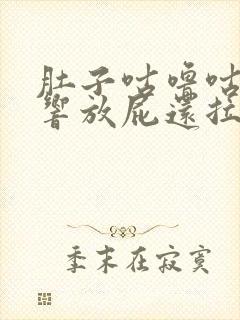 肚子咕噜咕
響放屁還拉
季末在寂寞